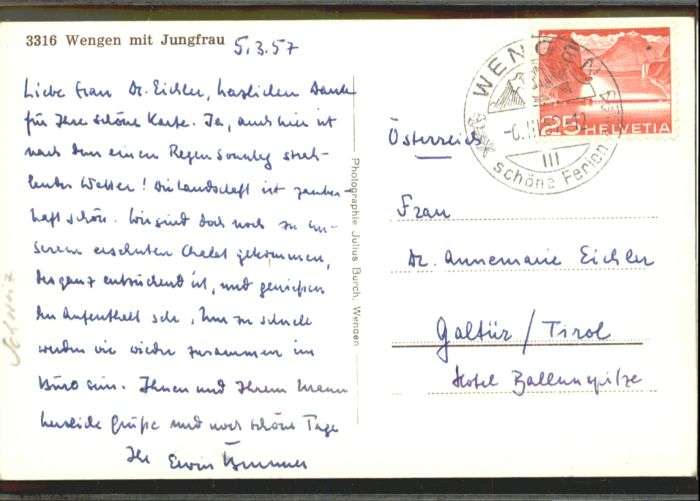 3316 Wengen mit Jungfrau
5.3.57
Liebe Frau Dr. Eichler, herzlichen Dank
für Ihre schöne Karte. Ja, auch hier ist
nach dem einen Regensonntag strah-
lendes Wetter! Die Landschaft ist zauber-
haft schön. Wir sind doch noch zu un-
serem ersehnten Chalet gekommen,
das ganz entzückend ist, und geniessen
den Aufenthalt sehr. Nur zu schnell
werden wir wieder zusammen im
Büro sein. Ihnen und Ihrem Mann
herzliche Grüße und noch schöne Tage
Ihr Erwin
Schweiz
Photographie Julius Burch, Wengen
WENGEN
-6.III
III
schöne Ferien
25 HELVETIA
Österreich
Frau
Dr. Annemarie Eichler
Galtür / Tirol
Hotel Ballunspitze